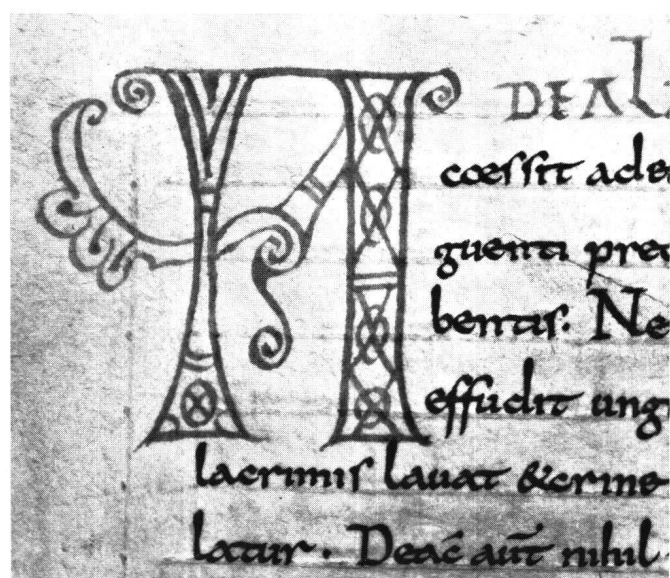 A DEAL
coessit ade
guenti prec
bentis. Ne
effudit ung
lacrimis lauat &crine
latur. Deac̄ aut̄ nihil